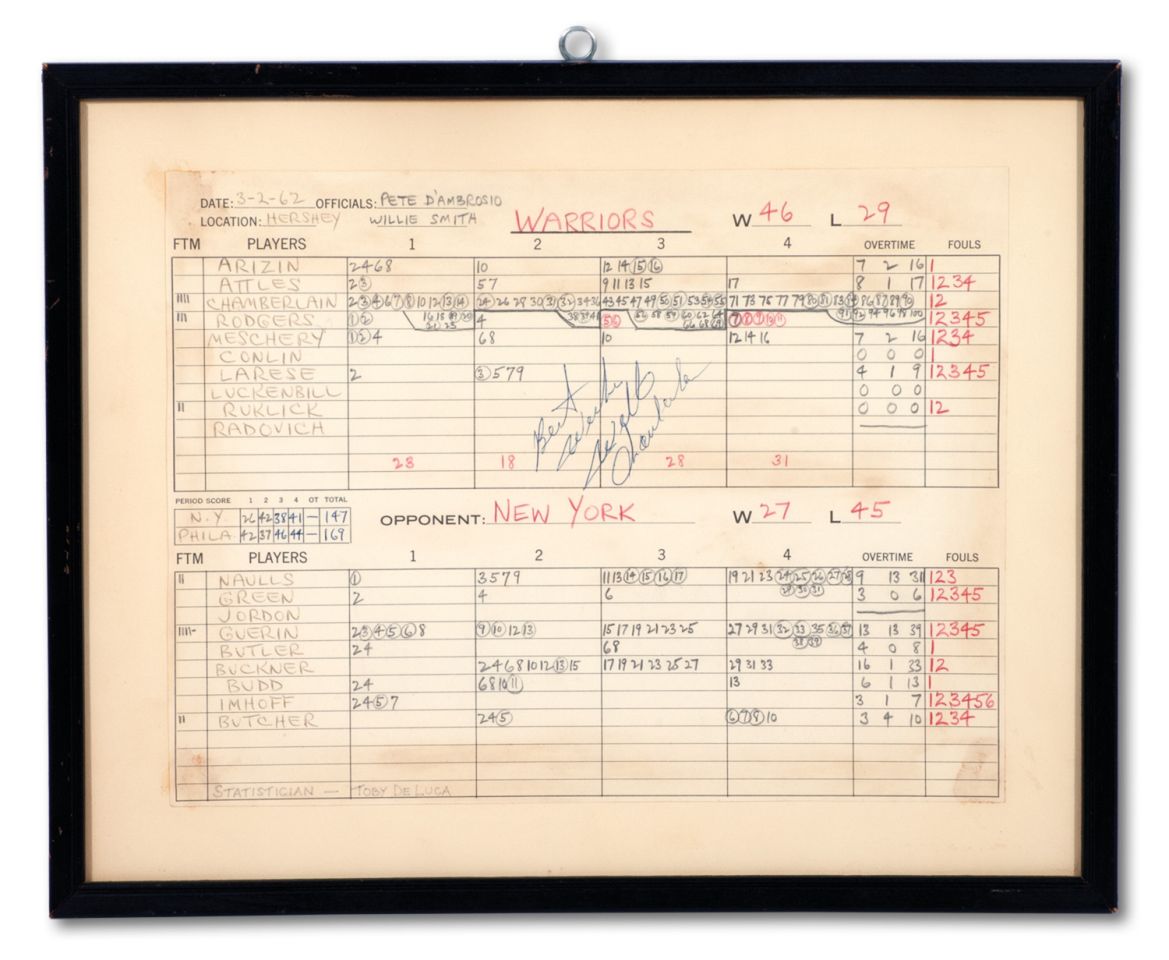 DATE: 3-2-62 OFFICIALS: PETE D'AMBROSIO
LOCATION: HERSHEY WILLIE SMITH WARRIORS W 46 L 29
FTM PLAYERS 1 2 3 4 OVERTIME FOULS
ARIZIN 2 4 6 8 10 12 14 15 16 7 2 16 1
ATTLES 2 3 5 7 9 11 13 15 17 8 1 17 1234
CHAMBERLAIN 2 3 4 6 7 8 10 12 13 14 24 26 28 30 31 32 34 36 43 45 47 49 50 51 53 54 55 71 73 75 77 79 80 81 83 84 86 87 89 90 12
16 18 19 20 38 39 41 56 58 59 60 62 64 91 92 94 96 98 100
RODGERS 1 2 21 23 4 5 6 66 68 69 7 8 9 10 11 12345
MESCHERY 1 2 4 6 8 10 12 14 16 7 2 16 1234
CONLIN 0 0 0 1
LARESE 2 3 5 7 9 4 1 9 12345
LUCKENBILL 0 0 0
RUKLICK 0 0 0 12
RADOVICH
Best Wishes
Wilt Chamberlain
23 18 28 31
PERIOD SCORE 1 2 3 4 OT TOTAL
N.Y 26 42 38 41 — 147
PHILA 42 37 46 44 — 169
OPPONENT: NEW YORK W 27 L 45
FTM PLAYERS 1 2 3 4 OVERTIME FOULS
NAULLS 1 3 5 7 9 11 13 14 15 16 17 19 21 23 24 25 26 27 28 9 13 31 123
29 30 31
GREEN 2 4 6 3 0 6 12345
JORDON
GUERIN 2 3 4 5 6 8 9 10 12 13 15 17 19 21 23 25 27 29 31 32 33 35 36 37 13 13 39 12345
38 39
BUTLER 2 4 6 8 4 0 8 1
BUCKNER 2 4 6 8 10 12 13 15 17 19 21 23 25 27 29 31 33 16 1 33 12
BUDD 2 4 6 8 10 11 13 6 1 13 1
IMHOFF 2 4 5 7 3 1 7 123456
BUTCHER 2 4 5 6 7 8 10 3 4 10 1234
STATISTICIAN — TOBY DE LUCA